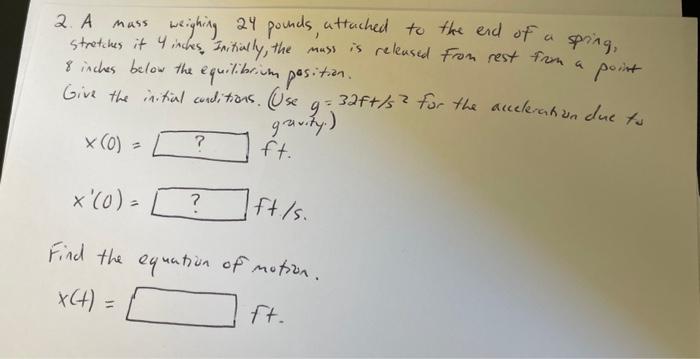 2. A mass weighing 24 pounds, attached to the end of a spring,
stretches it 4 inches. Initially, the mass is released from rest from a point
8 inches below the equilibrium position.
Give the initial conditions. (Use g = 32ft/s² for the acceleration due to
gravity.)
x(0) = ? ft.
x'(0) = ? ft/s.
Find the equation of motion.
x(t) = ft.